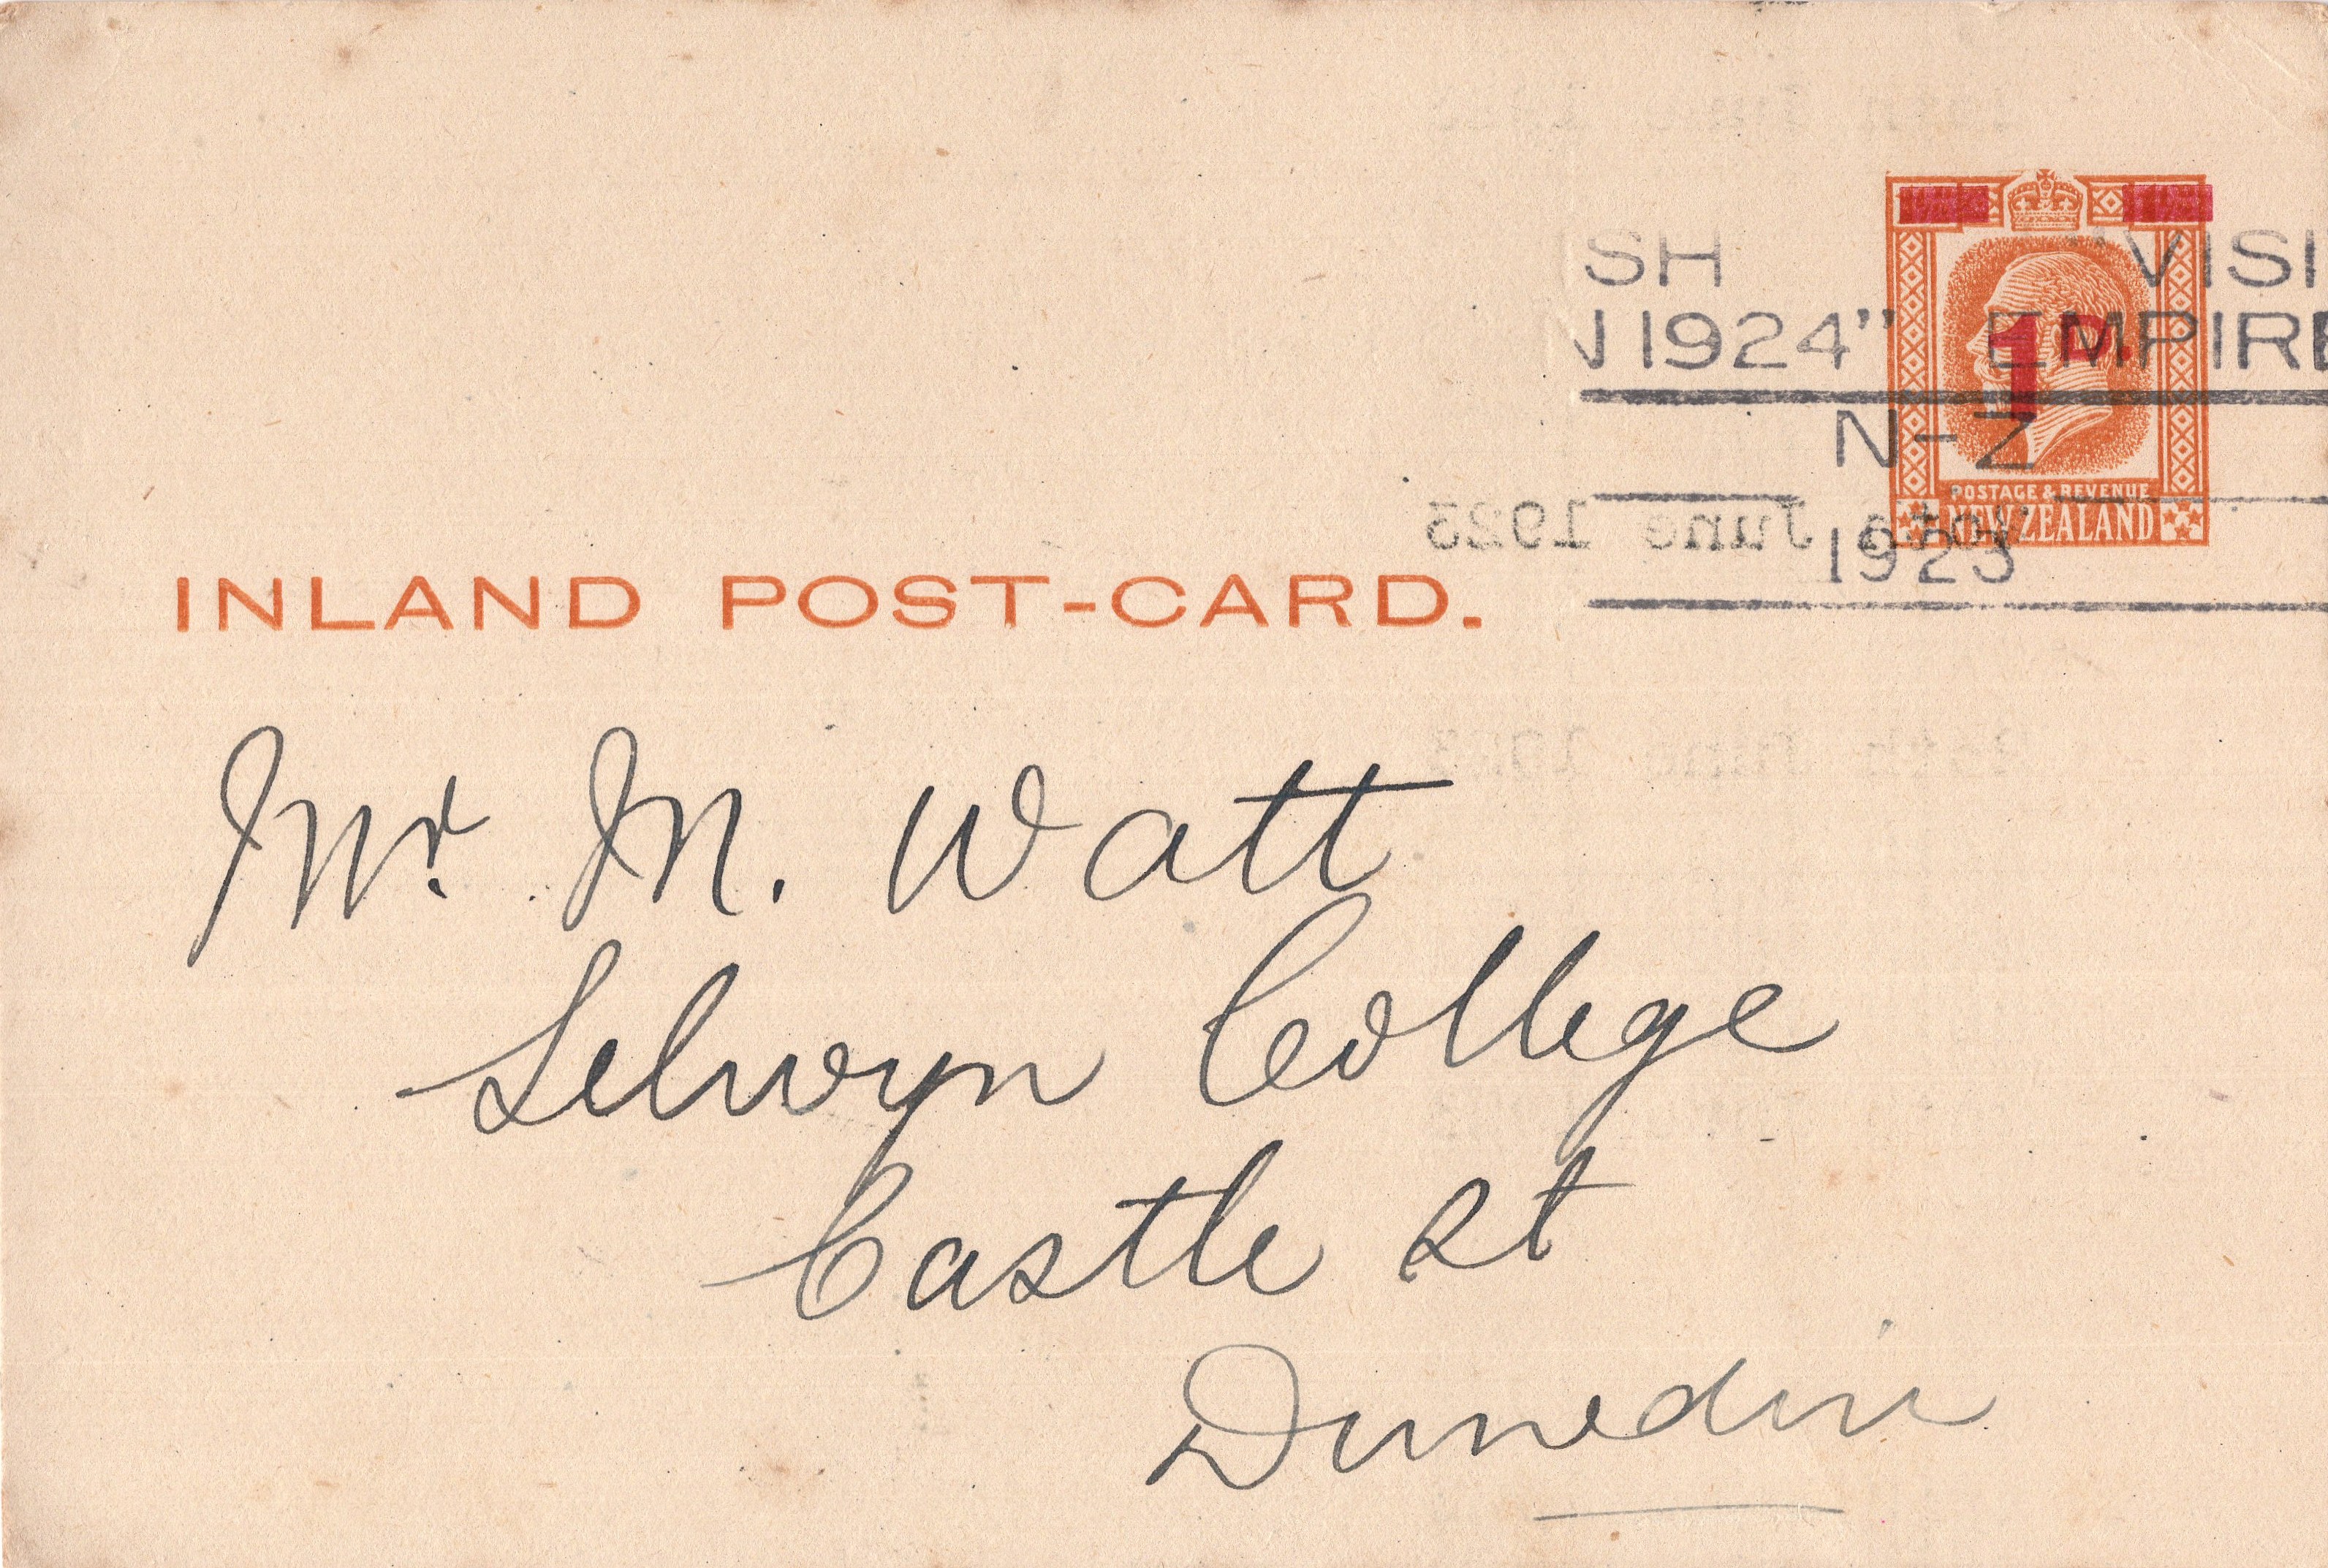 SH "VISI
N 1924" EMPIRE
1D.
N-Z
POSTAGE & REVENUE
NEW ZEALAND
1923
June 1923
INLAND POST-CARD.
Mr. M. Watt
Selwyn College
Castle St
Dunedin